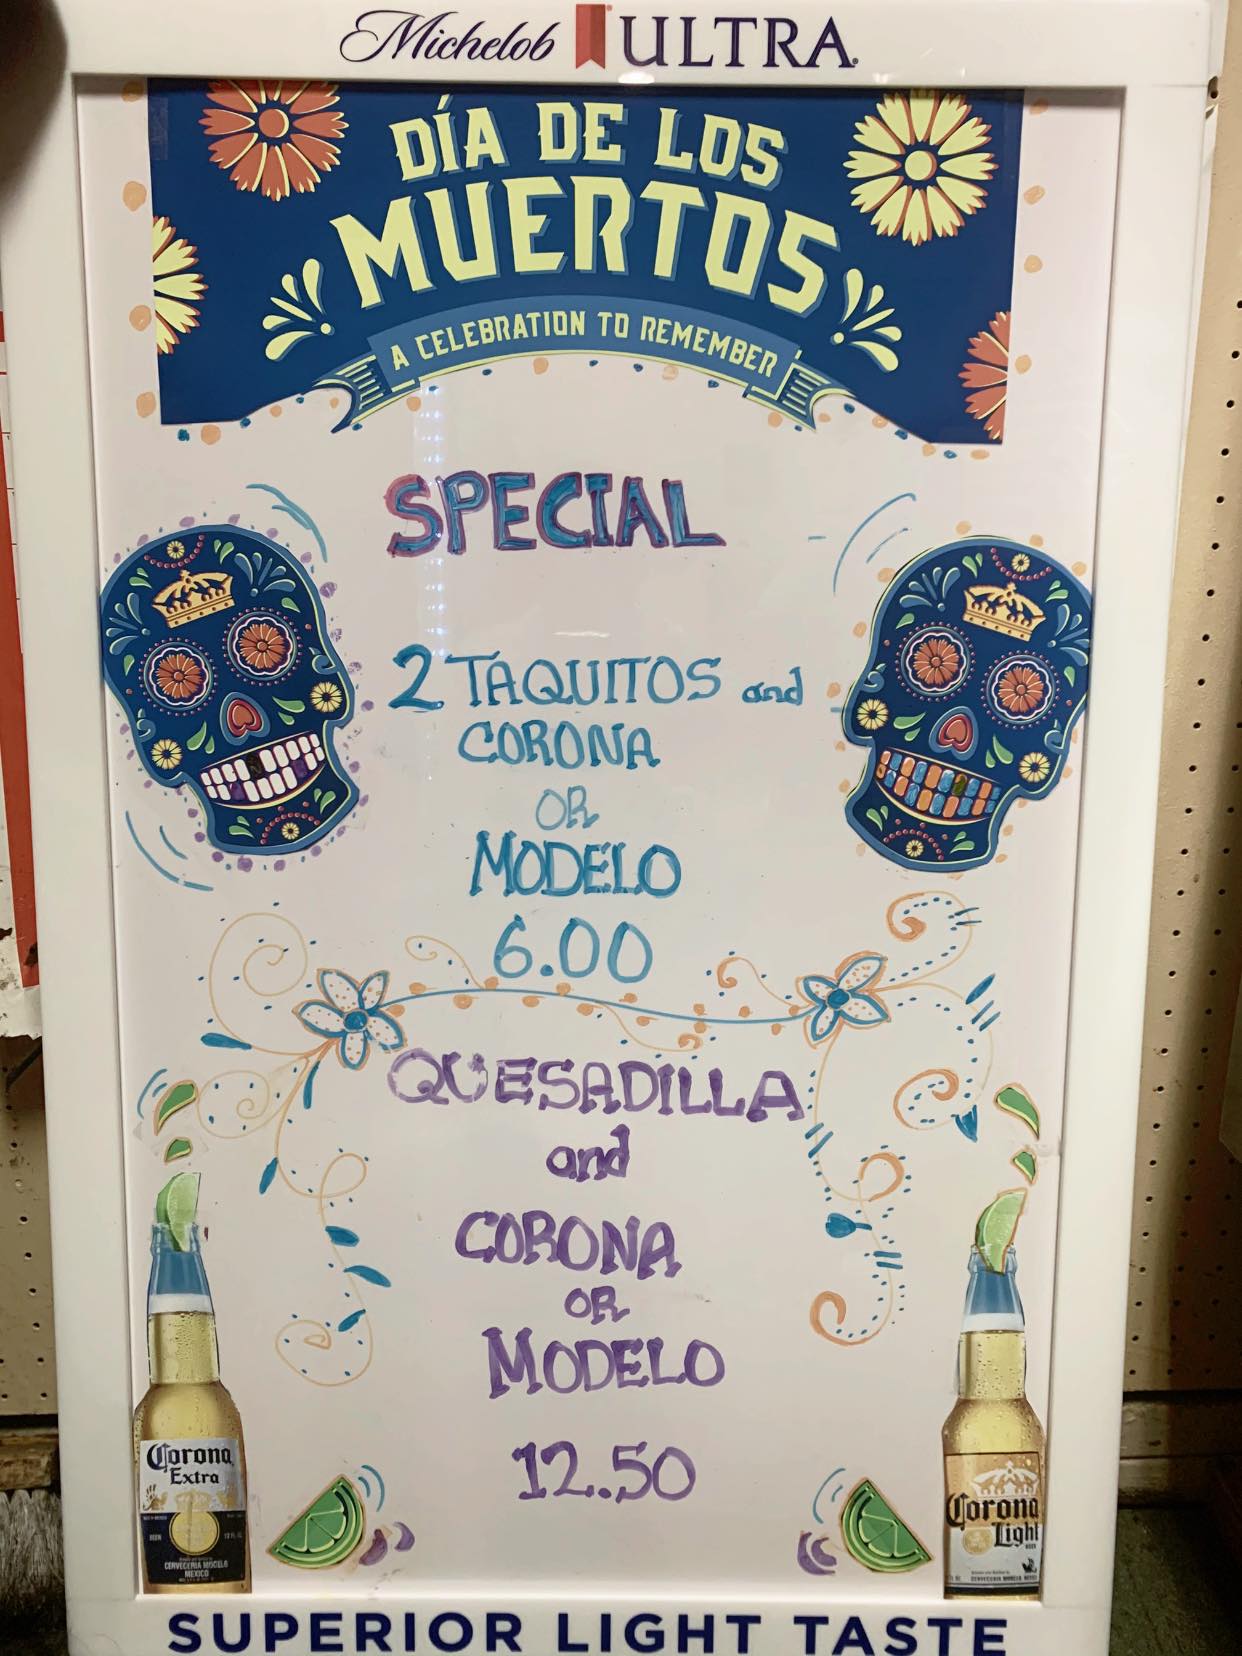 Michelob ULTRA
DÍA DE LOS
MUERTOS
A CELEBRATION TO REMEMBER
SPECIAL
2 TAQUITOS and
CORONA
OR
MODELO
6.00
QUESADILLA
and
CORONA
OR
MODELO
12.50
Corona
Extra
BEER
CERVECERIA MODELO
MEXICO
Corona
Light
BEER
SUPERIOR LIGHT TASTE